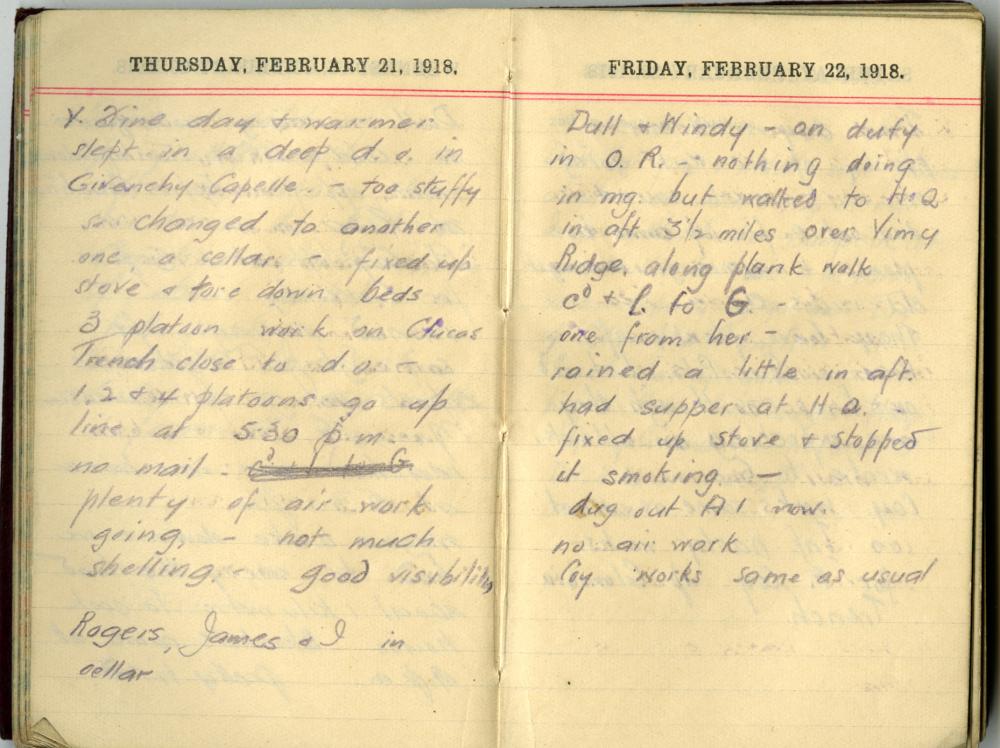 THURSDAY, FEBRUARY 21, 1918.
V. Fine day & warmer
slept in a deep d.o. in
Givenchy Capelle. - too stuffy
so changed to another
one, a cellar. - fixed up
stove & tore down beds
3 platoon work on Clucas
Trench close to d.o.
1. 2 & 4 platoons go up
line at 5.30 p.m.
no mail :
plenty of air work
going, - not much
shelling - good visibility
Rogers, James & I in
cellar
FRIDAY, FEBRUARY 22, 1918.
Dull & Windy - on duty
in O. R. - nothing doing
in mg. but walked to H.Q.
in aft 3½ miles over Vimy
Ridge, along plank walk
c⁰ & l. to G. -
one from her -
rained a little in aft.
had supper at H.Q.
fixed up stove & stopped
it smoking. -
dug out A1 now.
no air work
Coy. works same as usual